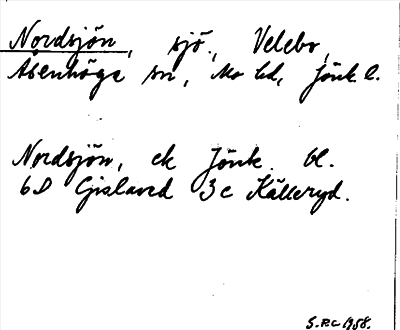 Nordsjön, sjö., Velebo,
Åsenhöga sn, Mo hd, Jönk. l.
Nordsjön, ek Jönk. bl.
6D Gislaved 3c Källeryd.
1958.